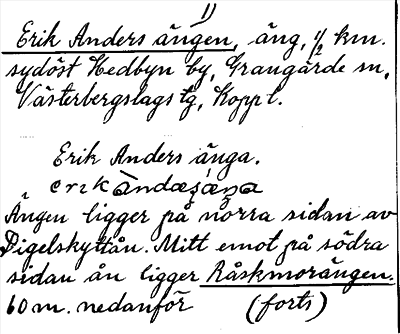 1)
Erik Anders ängen, äng, 1/2 km.
sydöst Hedbyn by, Grangärde sn,
Västerbergslags tg, Kopp l.
Erik Anders änga.
erɪk àndæʂǽŋa
Ängen ligger på norra sidan av
Digelskyttån. Mitt emot på södra
sidan ån ligger Råskmorängen.
60 m. nedanför (forts)